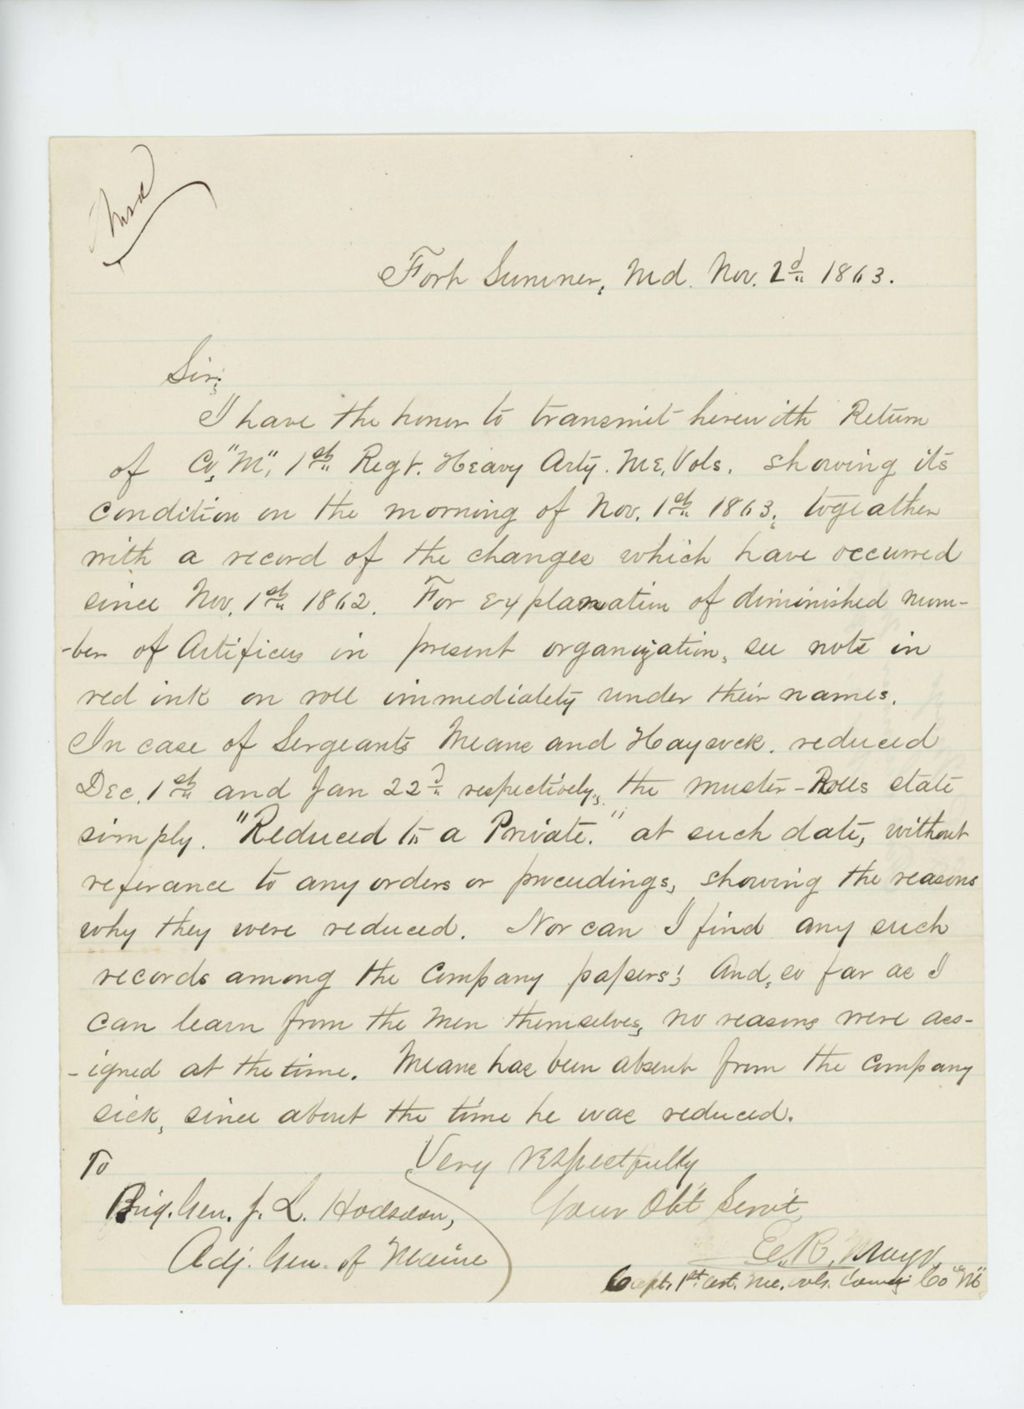 Fort Sumner, Md. Nov. 2d 1863.
Sir;
I have the honor to transmit herewith Return
of Co, "M", 1st Regt. Heavy Arty. Me, Vols. showing its
condition on the morning of Nov. 1st 1863, togeather
with a record of the changes which have occurred
since Nov. 1st 1862. For explanation of diminished num-
-ber of Artificers in present organization, see note in
red ink on roll immediately under their names.
In case of Sergeants Means and Haycock. reduced
Dec. 1st and Jan 22d respectively, the muster-Rolls state
simply. "Reduced to a Private." at such date, without
referance to any orders or proceedings, showing the reasons
why they were reduced. Nor can I find any such
records among the Company papers; And, so far as I
can learn from the men themselves, no reasons were ass-
-igned at the time. Means has been absent from the Company
sick, since about the time he was reduced.
To Very respectfully
Brig. Gen. J. L. Hodsdon, Your Obt Servt
Adj. Gen. of Maine E. R. Mayo,
Capt. 1st Art. Me. vols. Comdg Co "M"